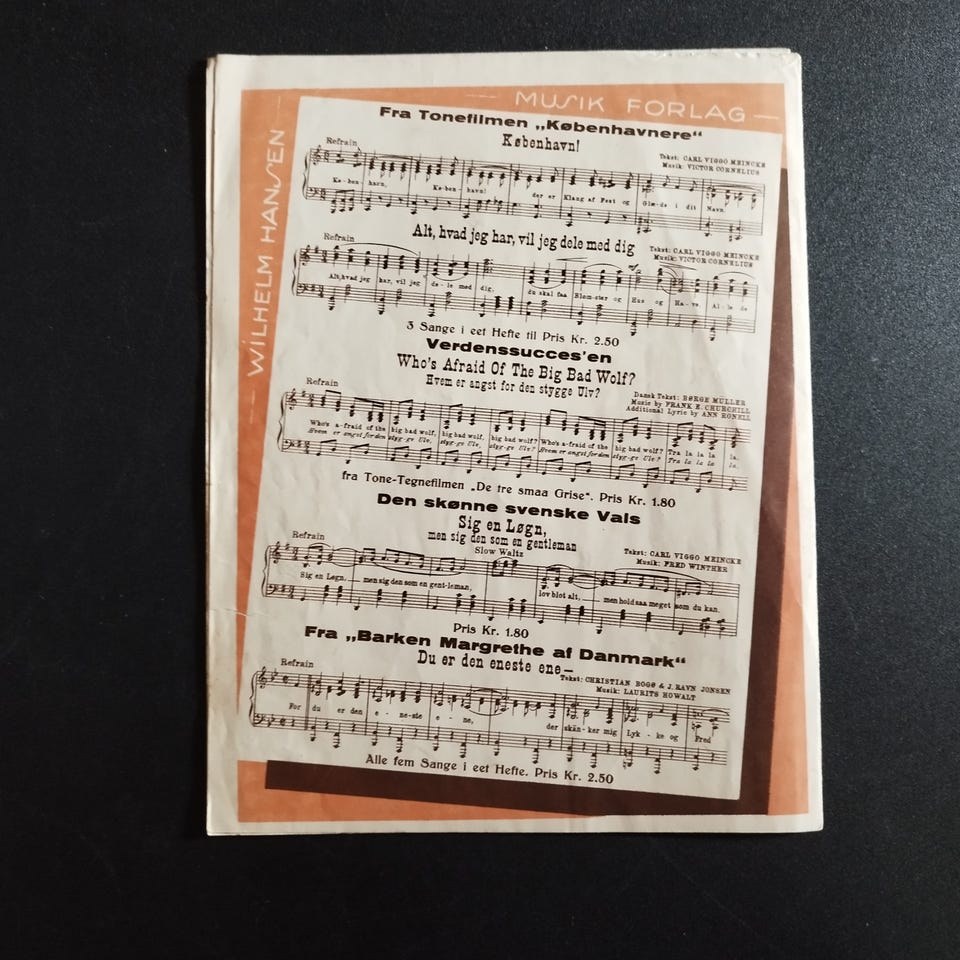 WILHELM HANSEN
MUSIK FORLAG
Fra Tonefilmen „Københavnere“
København!
Refrain
Tekst: CARL VIGGO MEINCKE
Musik: VICTOR CORNELIUS
Kø-ben-havn, Kø-ben-havn! der er Klang af Fest og Glæ-de i dit Navn.
Alt, hvad jeg har, vil jeg dele med dig
Refrain
Tekst: CARL VIGGO MEINCKE
Musik: VICTOR CORNELIUS
Alt, hvad jeg har, vil jeg de-le med dig, du skal faa Blom-ster og Hus og Ha-ve
3 Sange i eet Hefte til Pris Kr. 2.50
Verdenssucces'en
Who's Afraid Of The Big Bad Wolf?
Hvem er angst for den stygge Ulv?
Refrain
Dansk Tekst: BØRGE MÜLLER
Music by FRANK E. CHURCHILL
Additional Lyric by ANN RONELL
Who's a-fraid of the big bad wolf, big bad wolf, big bad wolf? Who's a-fraid of the big bad wolf? Tra la la la la.
Hvem er angst for den styg-ge Ulv, styg-ge Ulv, styg-ge Ulv? Hvem er angst for den styg-ge Ulv? Tra la la la la.
fra Tone-Tegnefilmen „De tre smaa Grise“. Pris Kr. 1.80
Den skønne svenske Vals
Sig en Løgn,
men sig den som en gentleman
Slow Waltz
Refrain
Tekst: CARL VIGGO MEINCKE
Musik: FRED WINTHER
Sig en Løgn, men sig den som en gent-leman, lov blot alt, men hold saa meget som du kan.
Pris Kr. 1.80
Fra „Barken Margrethe af Danmark“
Du er den eneste ene—
Refrain
Tekst: CHRISTIAN BOGØ & J. RAVN JONSEN
Musik: LAURITS HOWALT
For du er den e-ne-ste e-ne, der skän-ker mig Lyk-ke og Fred
Alle fem Sange i eet Hefte. Pris Kr. 2.50